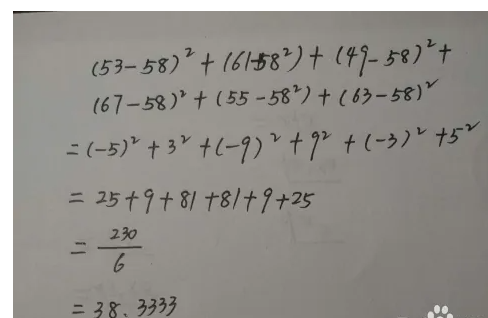 (53-58)² + (61-58²) + (49-58)² +
(67-58)² + (55-58²) + (63-58)²
= (-5)² + 3² + (-9)² + 9² + (-3)² + 5²
= 25+9+81+81+9+25
= 230/6
= 38.3333